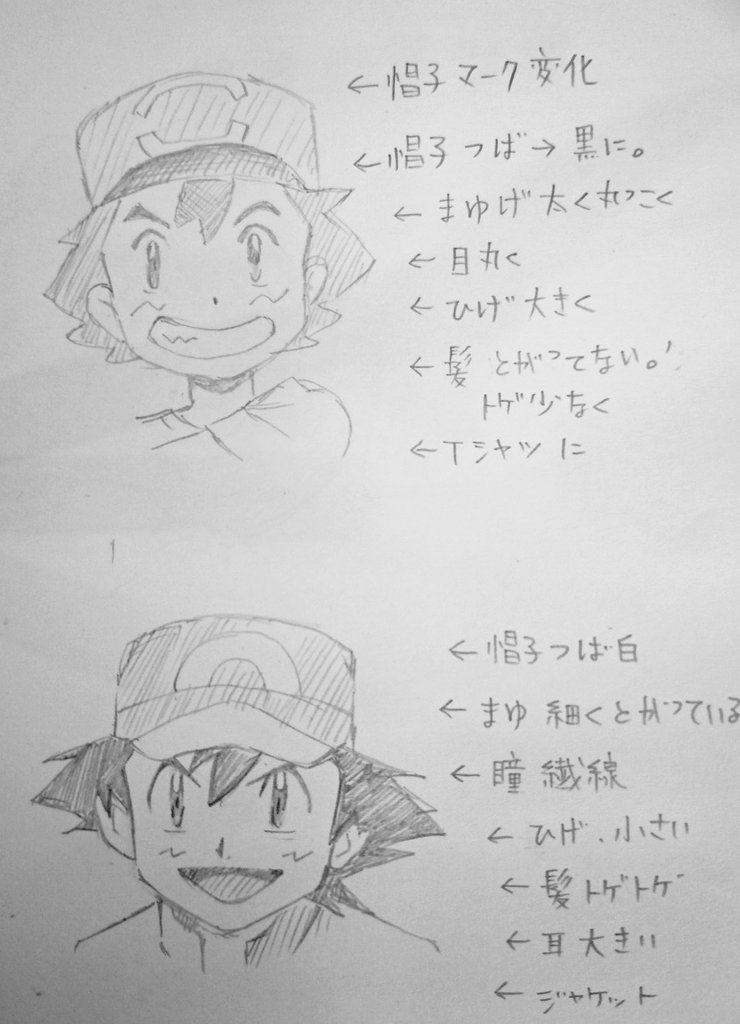 ←帽子マーク変化
←帽子つば→黒に。
←まゆげ太く丸っこく
←目丸く
←ひげ大きく
←髪とがってない。
トゲ少なく
←Tシャツに
←帽子つば白
←まゆ細くとがっている
←瞳繊線
←ひげ、小さい
←髪トゲトゲ
←耳大きい
←ジャケット